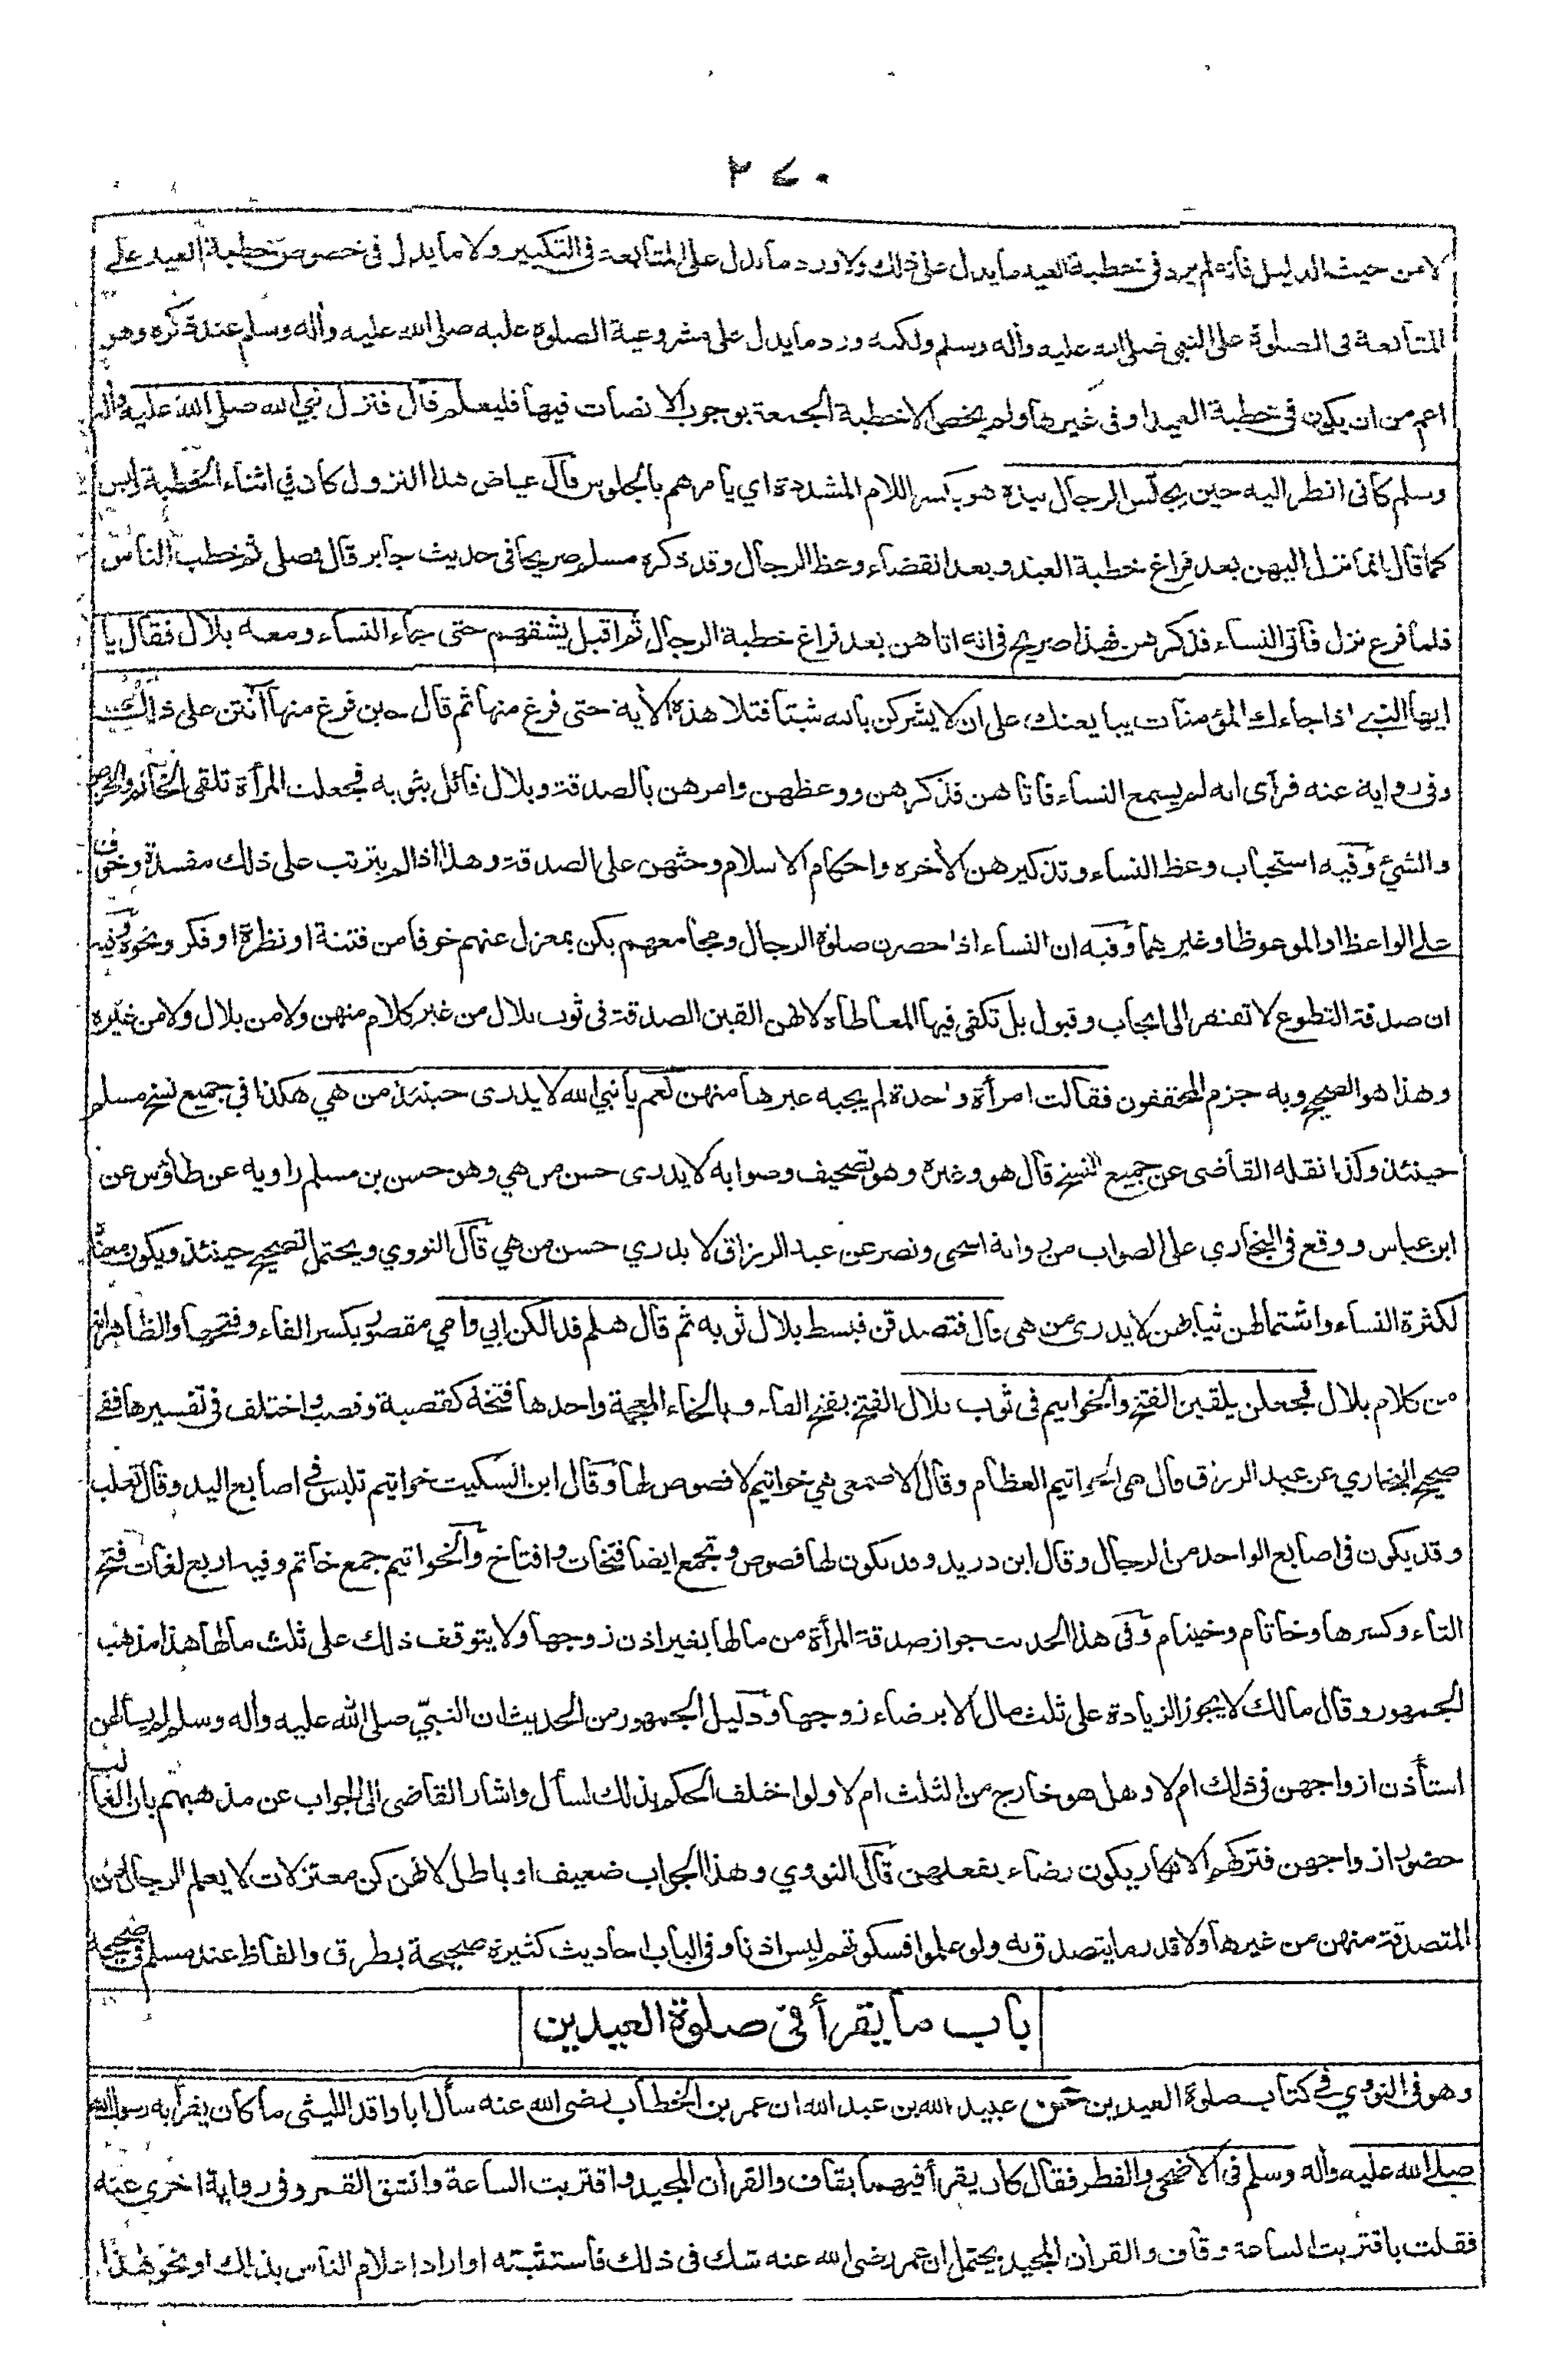 ٢٧٠
لا من حيث الدليل فانه لم يرد فى خطبة العيد ما يدل على ذلك ولا ورد ما يدل على المتابعة فى التكبير ولا ما يدل فى خصوص خطبة العيد على
المتابعة فى الصلوة على النبى صلى الله عليه وأله وسلم ولكنه ورد ما يدل على مشروعية الصلوة عليه صلى الله عليه وأله وسلم عند ذكره وهو
اعم من ان يكون فى خطبة العيد او فى غيرها ولم يخص الا خطبة الجمعة بوجوب الانصات فيها فليعلم قال فنزل نبي الله صلى الله عليه وأله
وسلم كانى انظر اليه حين يجلّس الرجال بيده هو بكسر اللام المشددة اي يأمرهم بالجلوس قال عياض هذا النزول كان في اثناء الخطبة وليس
كما قال انما نزل اليهن بعد فراغ خطبة العيد وبعد انقضاء وعظ الرجال وقد ذكره مسلم صريحا فى حديث جابر قال فصلى ثم خطب الناس
فلما فرغ نزل فأتى النساء فذكرهن فهذا صريح فى انه اتاهن بعد فراغ خطبة الرجال ثم اقبل يشقهم حتى جاء النساء ومعه بلال فقال يا
ايها النبي اذا جاءك المؤمنات يبايعنك على ان لا يشركن بالله شيئا فتلا هذه الأية حتى فرغ منها ثم قال حين فرغ منها أنتن على ذلك
وفى رواية عنه فرأى انه لم يسمع النساء فاتاهن فذكرهن ووعظهن وامرهن بالصدقة وبلال قائل بثوبه فجعلت المرأة تلقى الخاتم والخرص
والشئ وفيه استحباب وعظ النساء وتذكيرهن الأخرة واحكام الاسلام وحثهن على الصدقة وهذا اذا لم يترتب على ذلك مفسدة وخوف
على الواعظ او الموعوظ او غيرهما وفيه ان النساء اذا حضرن صلوة الرجال ومجامعهم يكن بمعزل عنهم خوفا من فتنة او نظرة او فكر ونحوه وفيه
ان صدقة التطوع لا تفتقر الى ايجاب وقبول بل تكفى فيها المعاطاة لانهن القين الصدقة فى ثوب بلال من غير كلام منهن ولا من بلال ولا من غيره
وهذا هو الصحيح وبه جزم المحققون فقالت امرأة واحدة لم يجبه غيرها منهن نعم يا نبي الله لا يدرى حينئذ من هي هكذا في جميع نسخ مسلم
حينئذ وكذا نقله القاضى عن جميع النسخ قال هو وغيره وهو تصحيف وصوابه لا يدرى حسن من هي وهو حسن بن مسلم راويه عن طاؤس عن
ابن عباس ووقع فى البخاري على الصواب من رواية اسحق ونصر عن عبد الرزاق لا يدري حسن من هي قال النووي ويحتمل تصحيح حينئذ ويكون معناه
لكثرة النساء واشتمالهن ثيابهن لا يدرى من هى قال فتصدقن فبسط بلال ثوبه ثم قال هلم فدا لكن ابي وامي مقصور بكسر الفاء وفتحها والظاهر انه
من كلام بلال فجعلن يلقين الفتخ والخواتيم فى ثوب بلال الفتخ بفتح الفاء وبالخاء المعجمة واحدها فتخة كقصبة وقصب واختلف فى تفسيرها ففى
صحيح البخاري عن عبد الرزاق قال هى الخواتيم العظام وقال الاصمعى هي خواتيم لا فصوص لها وقال ابن السكيت خواتيم تلبس في اصابع اليد وقال ثعلب
وقد يكون فى اصابع الواحد من الرجال وقال ابن دريد وقد يكون لها فصوص وتجمع ايضا فتخات وافتاخ والخواتيم جمع خاتم وفيه اربع لغات فتح
التاء وكسرها وخاتام وخيتام وفى هذا الحديث جواز صدقة المرأة من مالها بغير اذن زوجها ولا يتوقف ذلك على ثلث مالها هذا مذهب
الجمهور وقال مالك لا يجوز الزيادة على ثلث مال الا برضاء زوجها ودليل الجمهور من الحديث ان النبيّ صلى الله عليه وأله وسلم لم يسألهن
استأذن ازواجهن فى ذلك ام لا وهل هو خارج من الثلث ام لا ولو اختلف الحكم بذلك لسأل واشار القاضى الى الجواب عن مذهبهم بان الغالب
حضور ازواجهن فتركهم الانكار يكون رضاء بفعلهن قال النووي وهذا الجواب ضعيف او باطل لانهن كن معتزلات لا يعلم الرجال من
المتصدقة منهن من غيرها ولا قدر ما يتصدق به ولو علموا فسكوتهم ليس اذنا وفى الباب احاديث كثيرة صحيحة بطرق والفاظ عند مسلم في صحيحه
باب ما يقرأ فى صلوة العيدين
وهو فى النووي في كتاب صلوة العيدين عن عبيد الله بن عبد الله ان عمر بن الخطاب رضى الله عنه سأل ابا واقد الليثى ما كان يقرأ به رسول الله
صلى الله عليه وأله وسلم فى الاضحى والفطر فقال كان يقرأ فيهما بقاف والقرأن المجيد واقتربت الساعة وانشق القمر وفى رواية اخرى عنه
فقلت باقتربت الساعة وقاف والقرأن المجيد يحتمل ان عمر رضى الله عنه شك فى ذلك فاستثبته او اراد اعلام الناس بذلك او نحو هذا